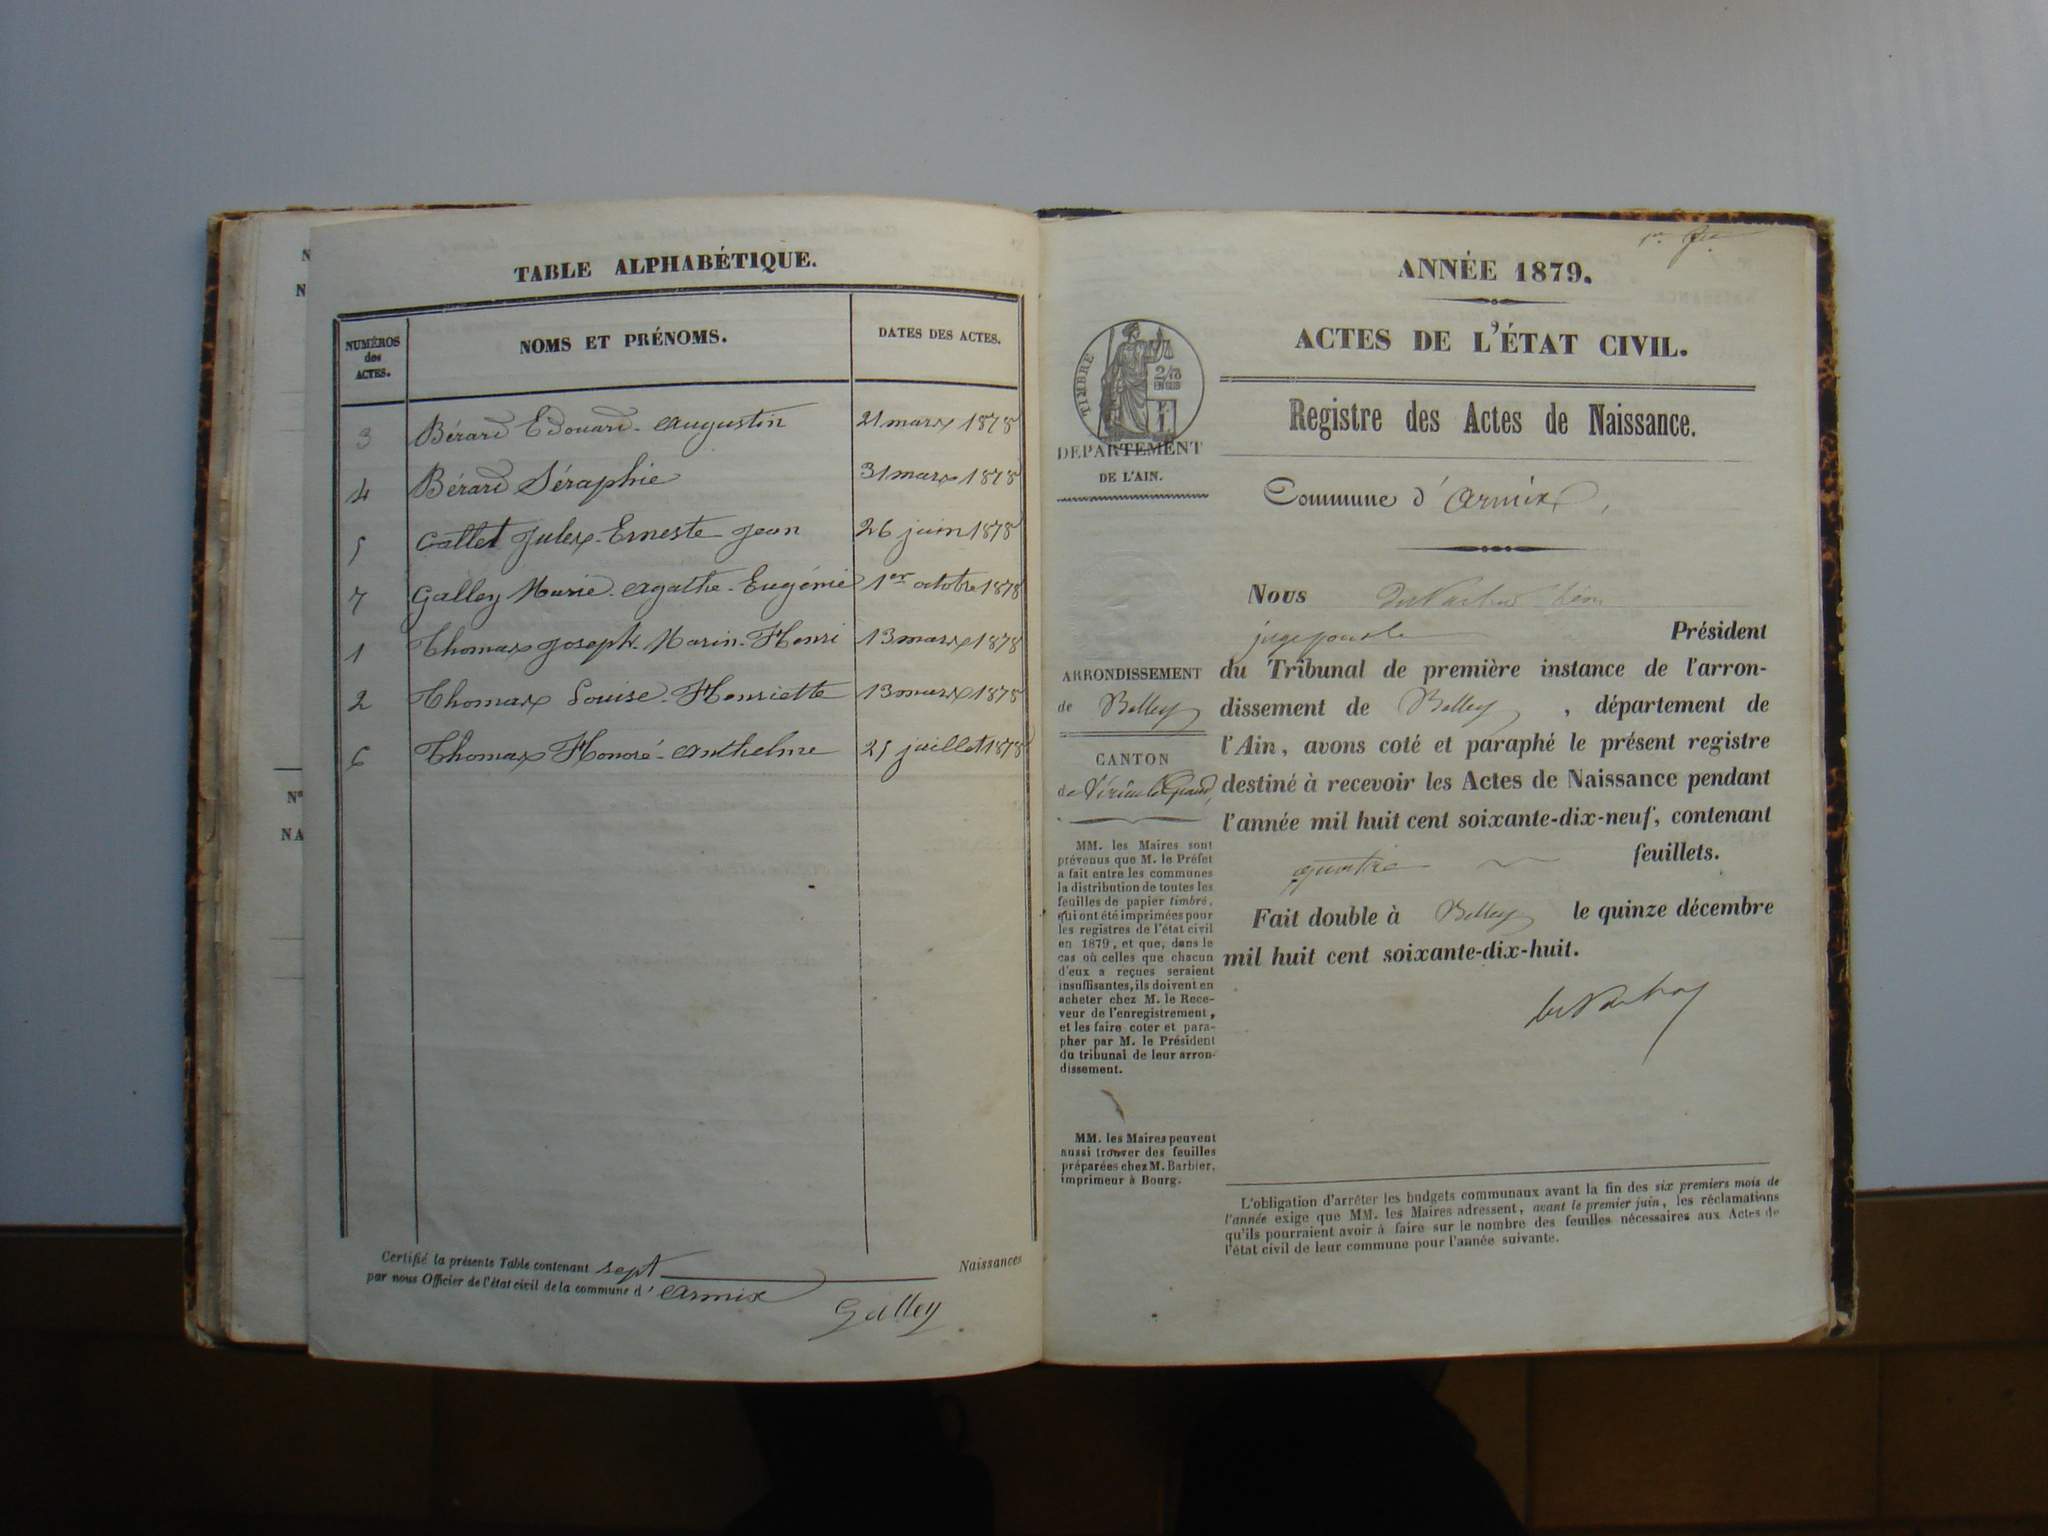 TABLE ALPHABÉTIQUE.
NUMÉROS
des
ACTES.
NOMS ET PRÉNOMS.
DATES DES ACTES.
3 Bérard Edouard-Augustin 21 mars 1878
4 Bérard Séraphie 31 mars 1878
5 Callet Jules-Erneste Jean 26 juin 1878
7 Galley Marie-Agathe-Eugénie 1er octobre 1878
1 Thomas Joseph-Marin-Henri 13 mars 1878
2 Thomas Louise-Henriette 13 mars 1878
6 Thomas Honoré-Anthelme 25 juillet 1878
Certifié la présente Table contenant sept Naissances
par nous Officier de l'état civil de la commune d' Armix
Galley
N
N
Nº
NA
ANNÉE 1879.
ACTES DE L'ÉTAT CIVIL.
Registre des Actes de Naissance.
Commune d'Armix,
TIMBRE
2/10
EN SUS
1
F.
DÉPARTEMENT
DE L'AIN.
ARRONDISSEMENT
de Belley
CANTON
de Virieu le Grand,
MM. les Maires sont
prévenus que M. le Préfet
a fait entre les communes
la distribution de toutes les
feuilles de papier timbré,
qui ont été imprimées pour
les registres de l'état civil
en 1879, et que, dans le
cas où celles que chacun
d'eux a reçues seraient
insuffisantes, ils doivent en
acheter chez M. le Rece-
veur de l'enregistrement,
et les faire coter et para-
pher par M. le Président
du tribunal de leur arron-
dissement.
MM. les Maires peuvent
aussi trouver des feuilles
préparées chez M. Barbier,
imprimeur à Bourg.
Nous
juge pour le Président
du Tribunal de première instance de l'arron-
dissement de Belley, département de
l'Ain, avons coté et paraphé le présent registre
destiné à recevoir les Actes de Naissance pendant
l'année mil huit cent soixante-dix-neuf, contenant
quatre feuillets.
Fait double à Belley le quinze décembre
mil huit cent soixante-dix-huit.
L'obligation d'arrêter les budgets communaux avant la fin des six premiers mois de
l'année exige que MM. les Maires adressent, avant le premier juin, les réclamations
qu'ils pourraient avoir à faire sur le nombre des feuilles nécessaires aux Actes de
l'état civil de leur commune pour l'année suivante.